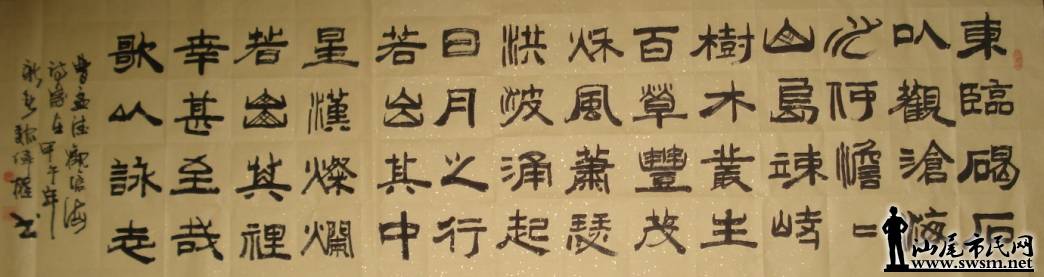 東臨碣石
以觀滄海
水何澹二
山島竦峙
樹木叢生
百草豐茂
秋風蕭瑟
洪波涌起
日月之行
若出其中
星漢燦爛
若出其裡
幸甚至哉
歌以詠志
曹孟德觀滄海
甲午年
汕尾市民网
www.swsm.net